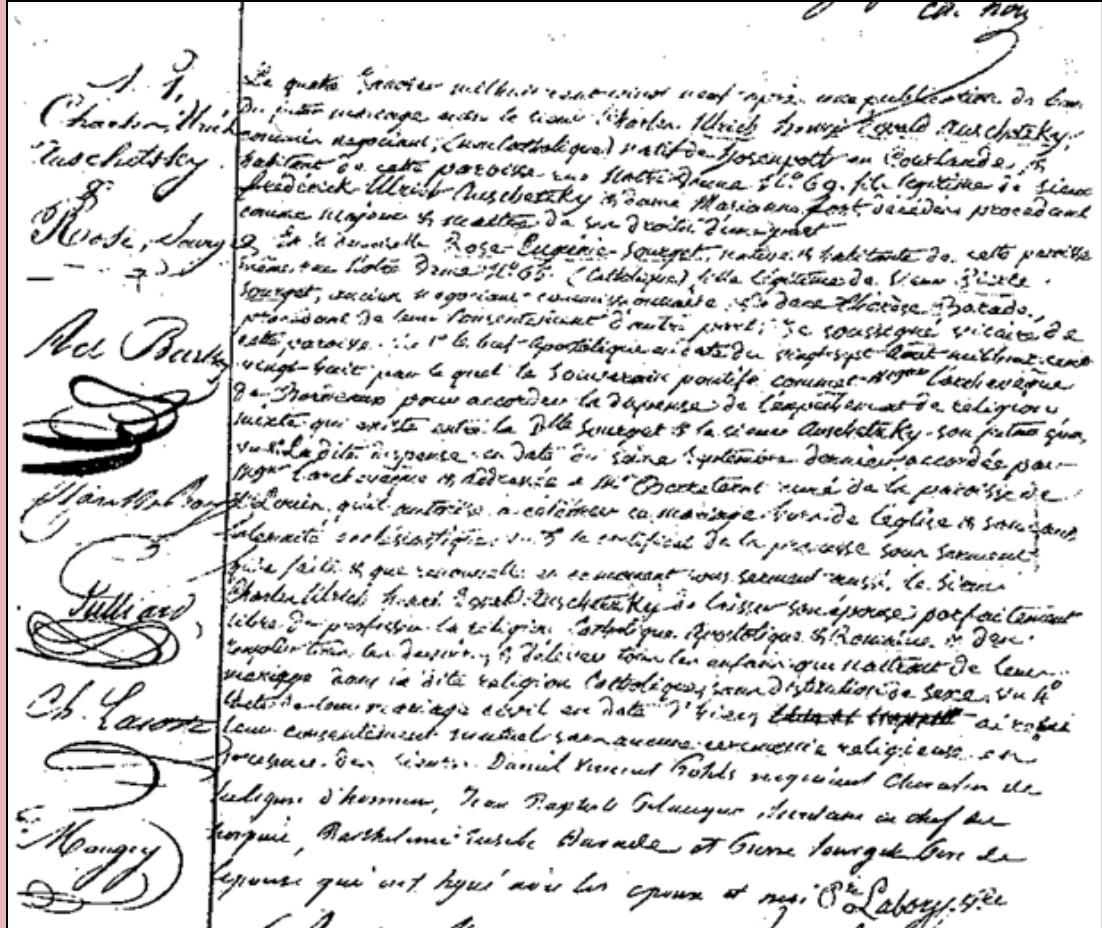 ch. hou
N° 1,
Charles Ulrich
Auschetsky
&
Rose, Sourget
Ad Barthez
Julliard
Ch. Lacoste
Mougey
Le quatre Janvier mil huit cent vingt neuf après une publication de ban
du futur mariage entre le sieur Charles Ulrich henri Ewald Auschetzky,
commis négociant, (non Catholique) natif de Hosenpott en Courlande, &
habitant de cette paroisse rue Notre Dame N.° 69, fils légitime de sieur
frédérick Ulrich Auschetzky & dame Marianne fort, décédés procédant
comme majeur & maître de ses droits d'une part
Et demoiselle Rose Eugénie Sourget, native & habitante de cette paroisse
même rue Notre Dame N.° 65 (Catholique) fille légitime de sieur
Sourget, ancien négociant commissionnaire & de dame Thérèse
procédant de leur consentement d'autre part; Je soussigné vicaire de
cette paroisse vu 1° le bref Apostolique en date du vingt sept Août mil huit cent
vingt huit par lequel le Souverain pontife commet Mgr l'archevêque
de Bordeaux pour accorder la dispense de l'empêchement de religion
mixte qui existe entre la Dlle Sourget & le sieur Auschetzky son futur époux
vu 2° La dite dispense en date du seize Septembre dernier, accordée par
Mgr l'archevêque & adressée à Mr curé de la paroisse de
St Louis, qu'il autorise à célébrer ce mariage hors de l'église & sans aucune
solennité ecclésiastique vu 3° le certificat de la promesse sous serment
qu'a faite & que renouvelle en ce moment sous serment aussi, le sieur
Charles Ulrich henri Ewald Auschetzky de laisser son épouse parfaitement
libre de professer la religion Catholique Apostolique & Romaine, & d'en
remplir tous les devoirs, & d'élever tous les enfans qui naîtront de leur
mariage dans la dite religion Catholique, sans distinction de sexe, vu 4°
l'acte de leur mariage civil en date d'hier, ai reçu
leur consentement mutuel sans aucune cérémonie religieuse en
présence des sieurs Daniel Vincent négociant Chevalier de
la légion d'honneur, Jean Baptiste en chef de
Barthélemi Eusèbe et Pierre Sourget frère de
l'épouse qui ont signé avec les époux et moi Labory, vre